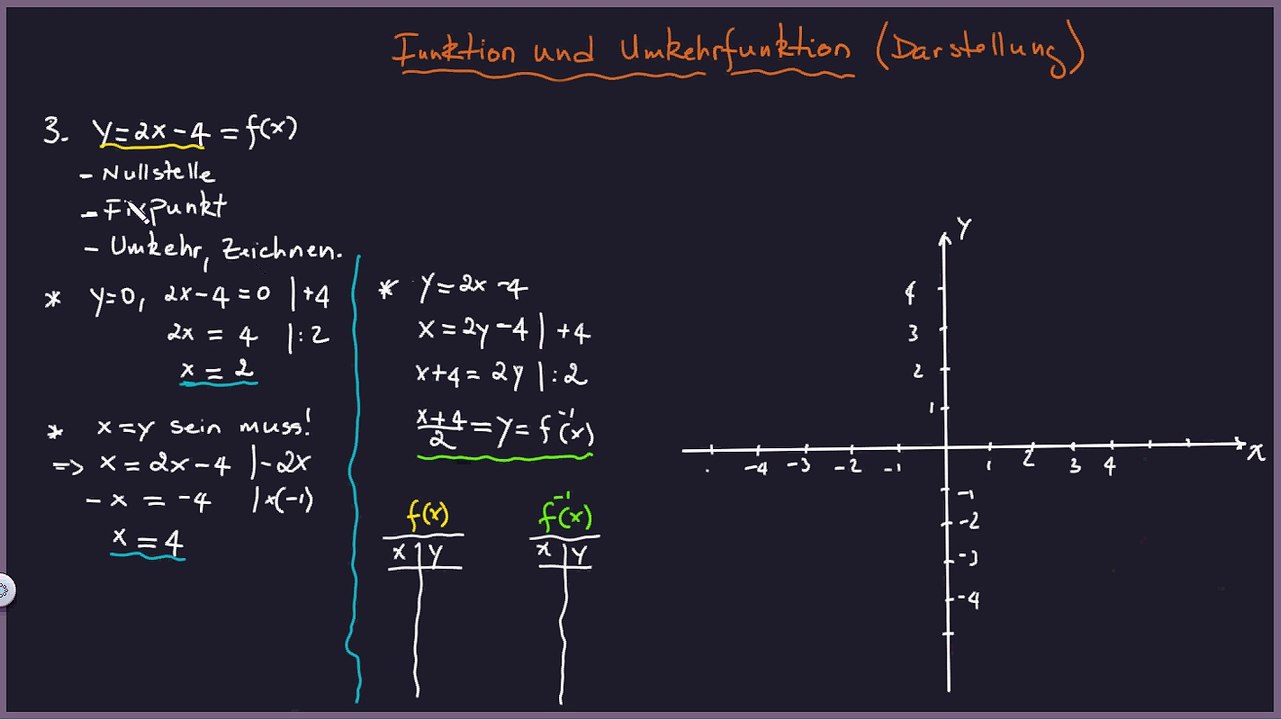 Funktion und Umkehrfunktion (Darstellung)
3. y=2x-4 = f(x)
- Nullstelle
- Fixpunkt
- Umkehr, Zeichnen.
* y=0, 2x-4=0 |+4
2x = 4 |:2
x = 2
* x=y sein muss!
=> x = 2x-4 |-2x
-x = -4 |x(-1)
x = 4
* y=2x-4
x=2y-4 | +4
x+4= 2y |:2
x+4/2 = y = f⁻¹(x)
f(x)
x | y
f⁻¹(x)
x | y
y
4
3
2
1
-4 -3 -2 -1 1 2 3 4 x
-1
-2
-3
-4